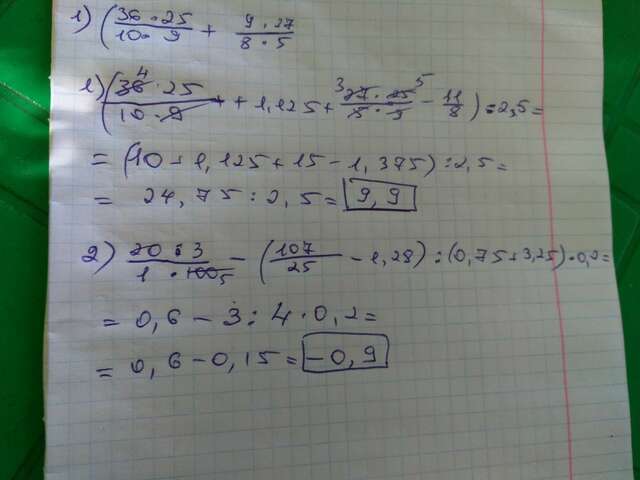 1) (36·25/10·9 + 9·27/8·5
1) (36 4·25/10·9 + 1,125 + 3 27·25 5/5·9 - 11/8) : 2,5 =
= (10 + 1,125 + 15 - 1,375) : 2,5 =
= 24,75 : 2,5 = 9,9
2) 20·3/1·100 5 - (107/25 - 1,28) : (0,75 + 3,25) · 0,2 =
= 0,6 - 3 : 4 · 0,2 =
= 0,6 - 0,15 = -0,9